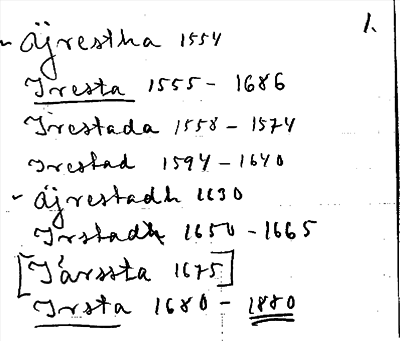 1.
- Äjrestha 1554
Iresta 1555 - 1686
Irestada 1558 - 1574
Irestad 1594 - 1640
- Äjrestadh 1630
Irstadh 1650 - 1665
[Iärssta 1675]
Irsta 1680 - 1880